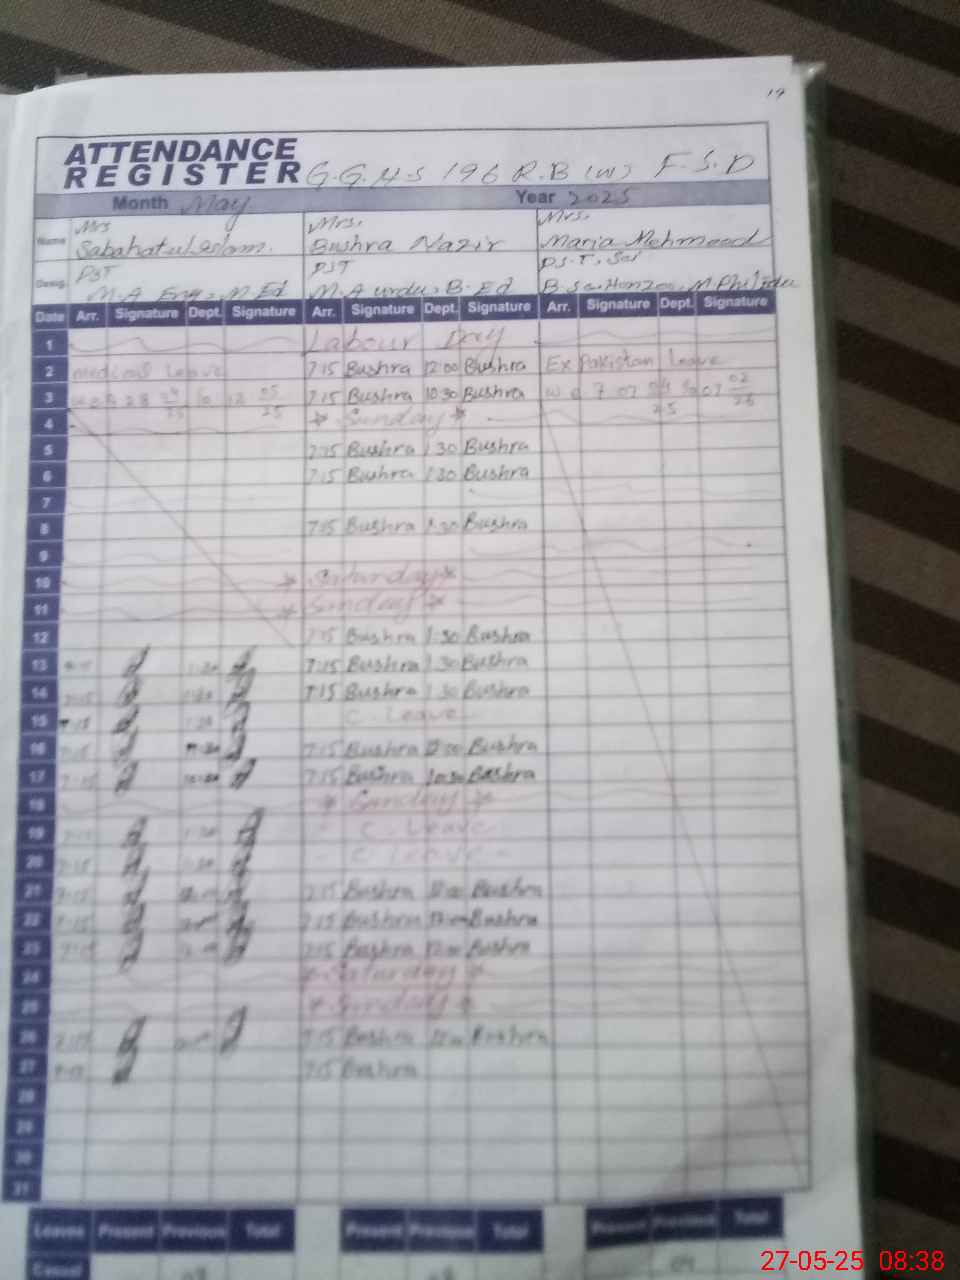 19
ATTENDANCE
REGISTER G.G.H.S 196 R.B (W) F.S.D
Month May Year 2025
Name Mrs Sabahatulislam. Mrs. Bushra Nazir Mrs. Maria Mehmood
Desig. PST M.A Eng, M.Ed PST M.A urdu, B.Ed P.S.T, Sci B.Sc. M.Phil Edu
Date Arr. Signature Dept. Signature Arr. Signature Dept. Signature Arr. Signature Dept. Signature
1 Labour Day
2 medical Leave 7:15 Bushra 12:00 Bushra Ex Pakistan Leave
3 7:15 Bushra 10:30 Bushra
4 * Sunday *
5 7:15 Bushra 1:30 Bushra
6 7:15 Bushra 1:30 Bushra
7
8 7:15 Bushra 1:30 Bushra
9
10 * Saturday *
11 * Sunday *
12 7:15 Bushra 1:30 Bushra
13 1:30 7:15 Bushra 1:30 Bushra
14 7:15 1:30 7:15 Bushra 1:30 Bushra
15 7:15 1:30 C. Leave
16 7:15 7:15 Bushra 12:00 Bushra
17 7:15 10:30 7:15 Bushra 10:30 Bushra
18 * Sunday *
19 7:15 1:30 - C. Leave
20 7:15 1:30 - C. Leave -
21 7:15 7:15 Bushra 12:00 Bushra
22 7:15 7:15 Bushra 12:00 Bushra
23 7:15 7:15 Bushra 12:00 Bushra
24 * Saturday *
25 * Sunday *
26 7:15 7:15 Bushra 12:00 Bushra
27 7:15 7:15 Bushra
28
29
30
31
Leaves Present Previous Total Present Previous Total Present Previous Total
Casual
27-05-25 08:38